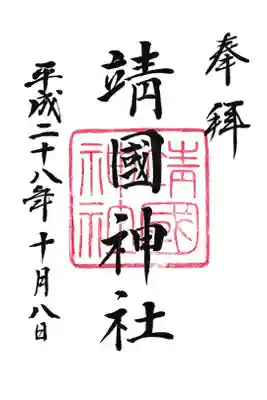 奉拝
靖國神社
靖國神社
平成二十八年十月八日